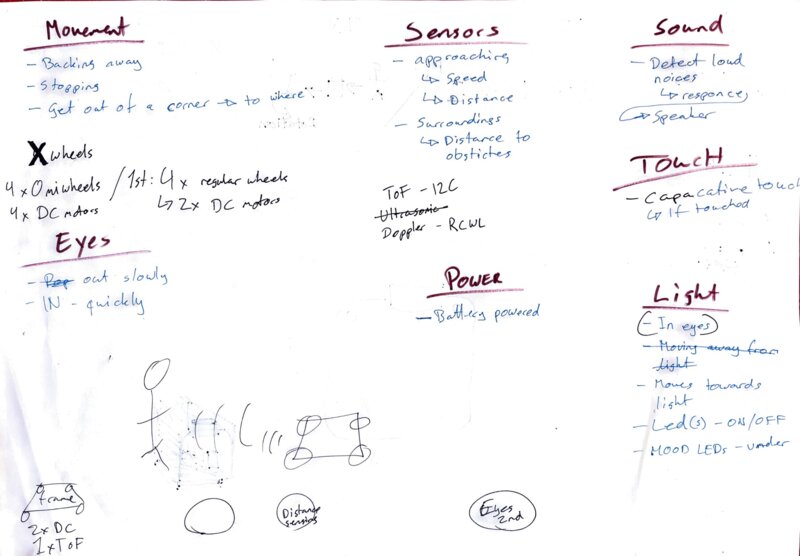 Movement
- Backing away
- Stopping
- Get out of a corner → to where
X wheels
4 x Omiwheels / 1st: 4 x regular wheels
4 x DC motors
↳ 2x DC motors
Eyes
- Pop out slowly
- IN - quickly
Sensors
- approaching
↳ Speed
↳ Distance
- Surroundings
↳ Distance to
obsticles
ToF - I2C
Ultrasonic
Doppler - RCWL
Power
- Battery powered
Sound
- Detect loud
noices
↳ responce
→ Speaker
Touch
- Capacative touch
↳ If touched
Light
- In eyes
- Moving away from
light
- Moves towards
light
- Led(s) - ON/OFF
- MOOD LEDs - under
frame
2x DC
1x ToF
Distance
sensing
Eyes
2nd